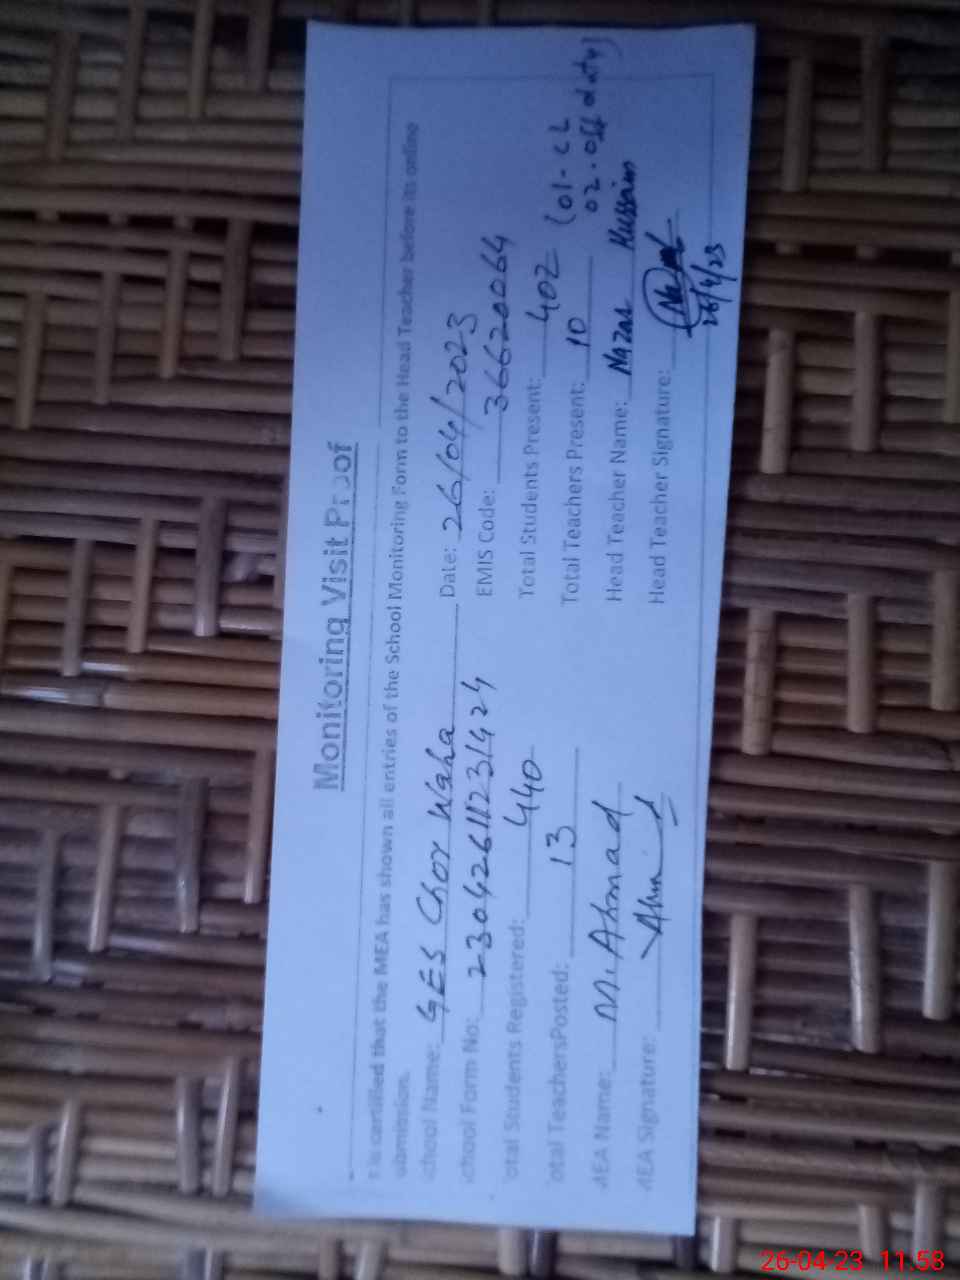 Monitoring Visit Proof
t is certified that the MEA has shown all entries of the School Monitoring Form to the Head Teacher before its online
ubmission.
chool Name: GES Chor Waha Date: 26/04/2023
chool Form No: 230426112314 24 EMIS Code: 36620064
otal Students Registered: 440 Total Students Present: 402
otal TeachersPosted: 13 Total Teachers Present: 10 (01- CL
02. off duty)
MEA Name: M. Ahmad Head Teacher Name: Nazar Hussain
MEA Signature: Head Teacher Signature:
26/4/23
26-04-23 11:58